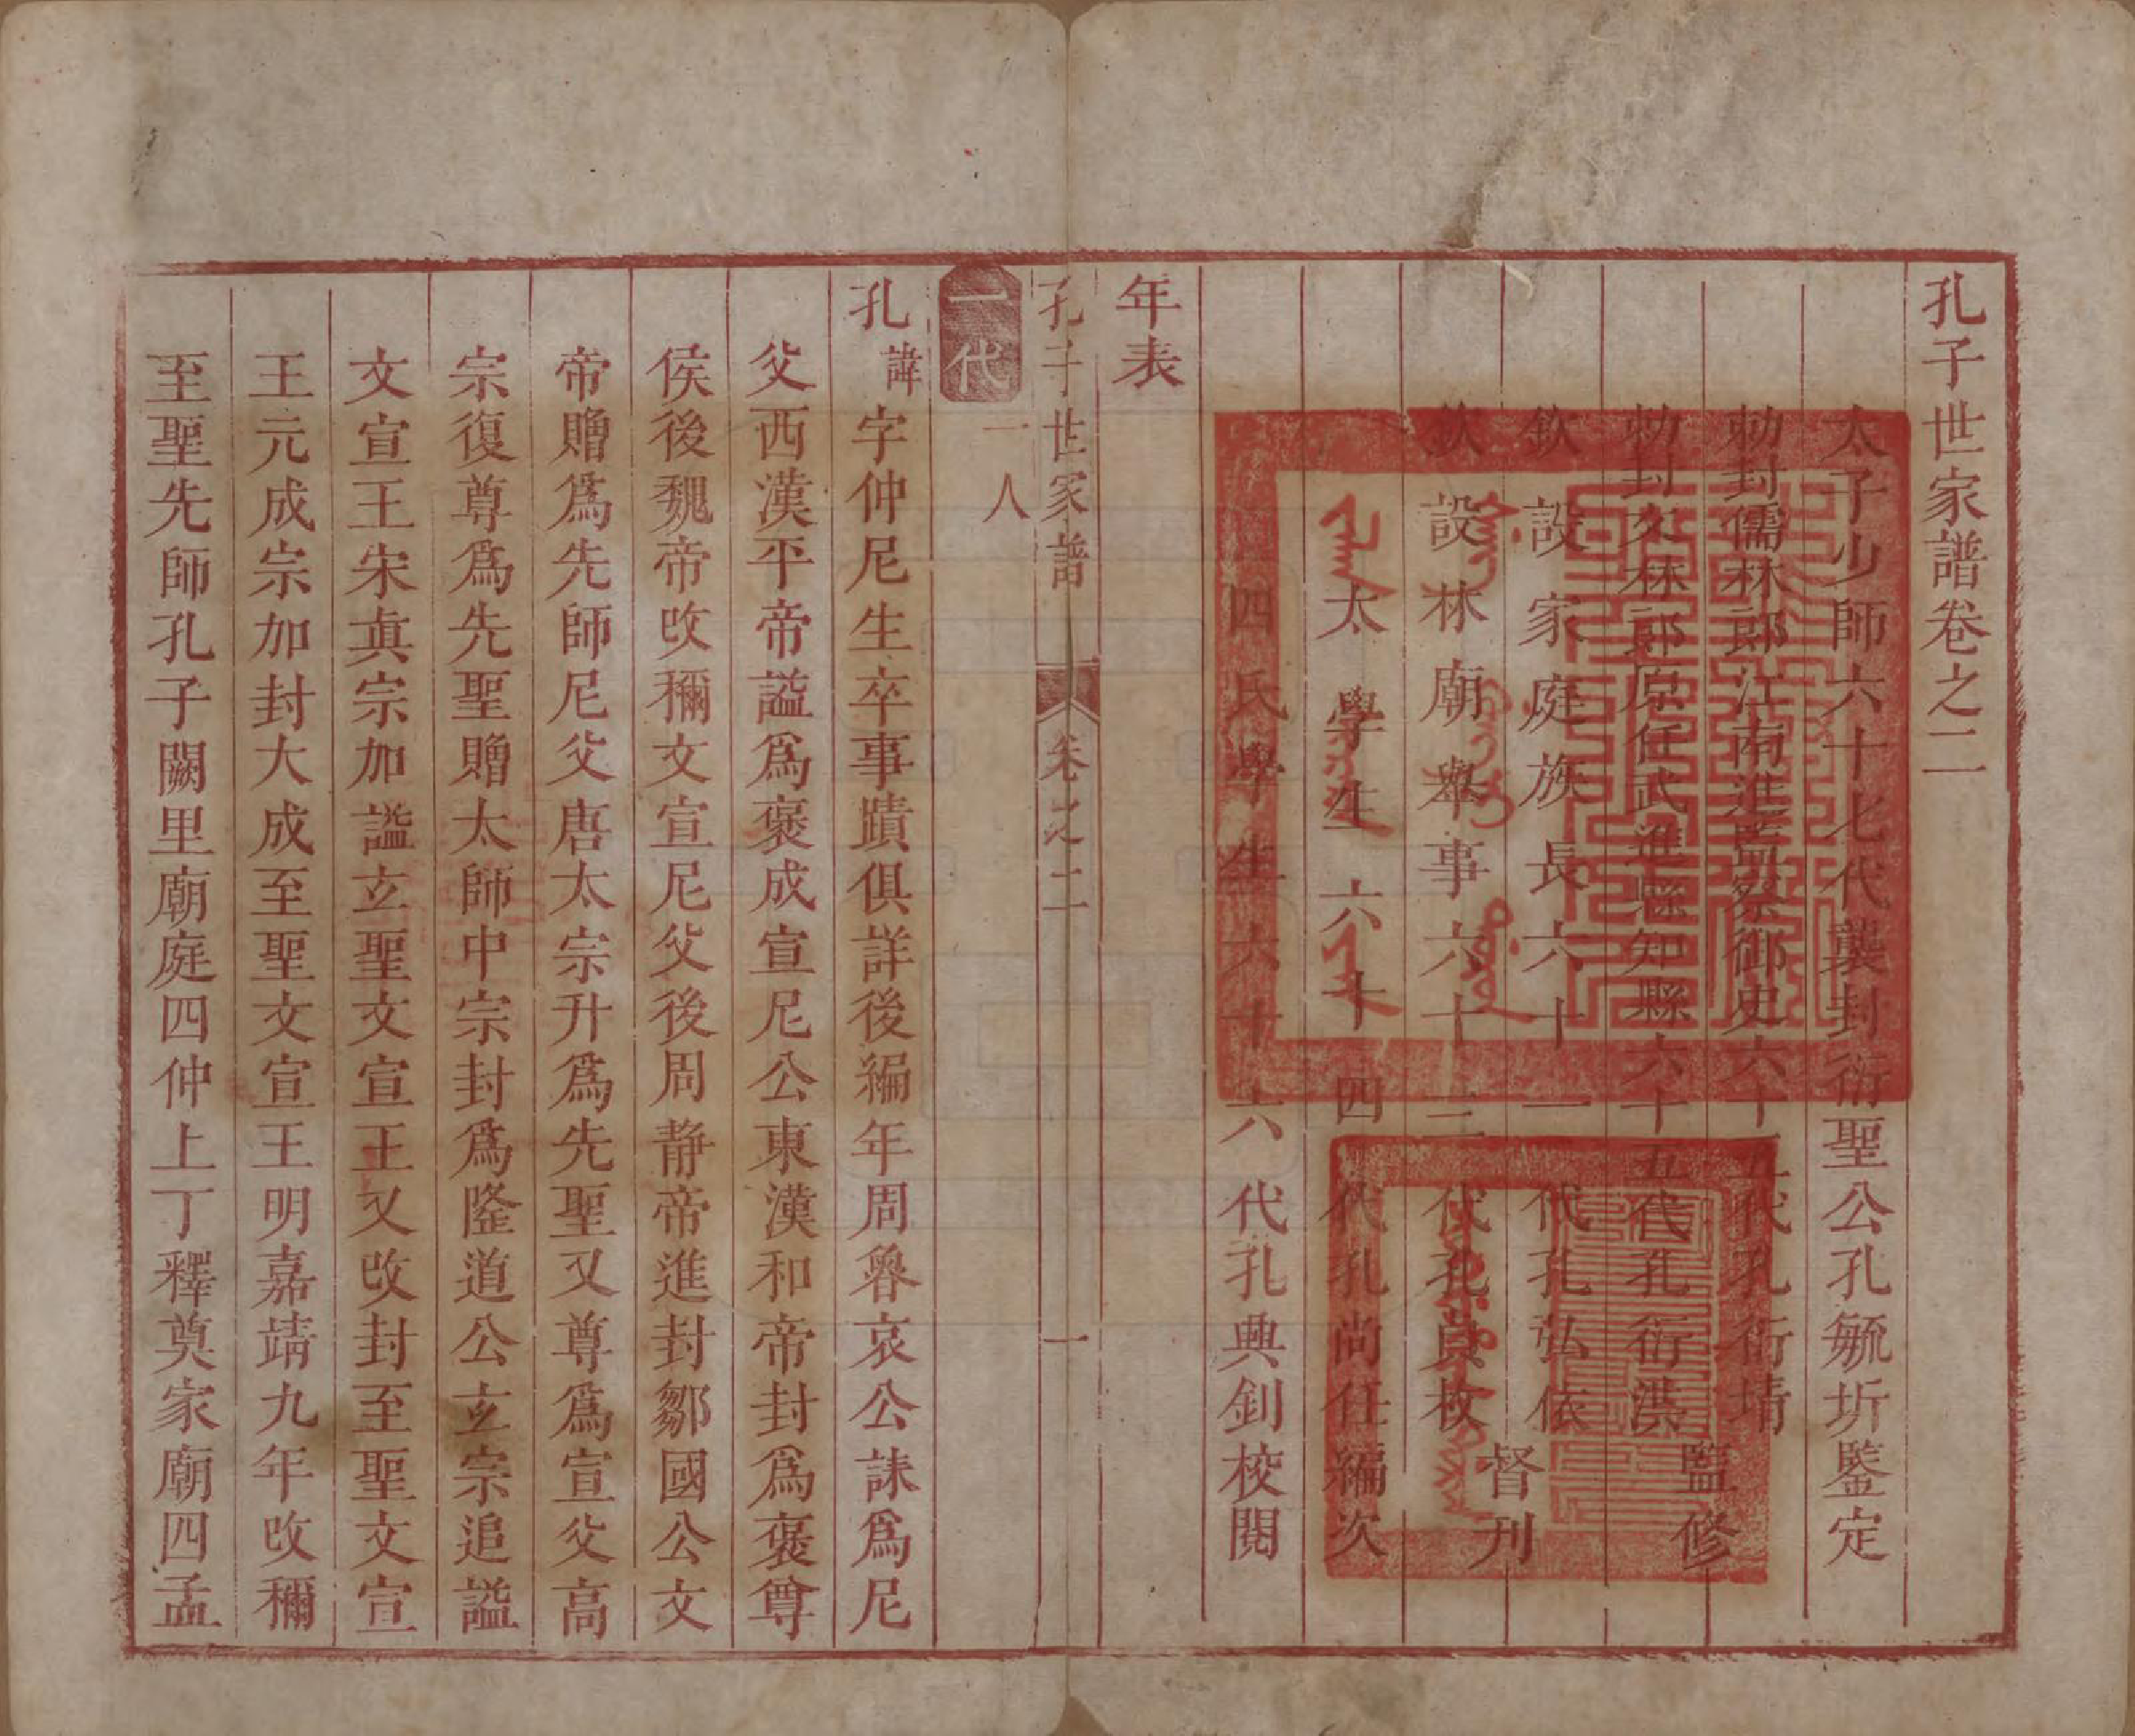 孔子世家譜卷之二
太子少師六十七代襲封衍聖公孔毓圻鑒定
勅封儒林郎江南道監察御史六十五代孔衍堉
勅封文林郎原任武進縣知縣六十五代孔衍洪 監修
欽設家庭族長六十一代孔弘依
欽設林廟舉事六十三代孔貞枚 督刊
太學生六十四代孔尚任編次
四氏學生六十六代孔興釗校閱
年表
孔子世家譜 卷之二 一
一代 一人
孔諱 字仲尼生卒事蹟俱詳後編年周魯哀公誄爲尼
父西漢平帝謚爲褒成宣尼公東漢和帝封爲褒尊
侯後魏帝改稱文宣尼父後周静帝進封鄒國公文
帝贈爲先師尼父唐太宗升爲先聖又尊爲宣父高
宗復尊爲先聖贈太師中宗封爲隆道公玄宗追謚
文宣王宋眞宗加謚玄聖文宣王又改封至聖文宣
王元成宗加封大成至聖文宣王明嘉靖九年改稱
至聖先師孔子闕里廟庭四仲上丁釋奠家廟四孟